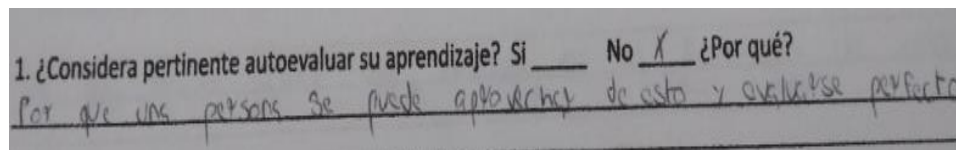 1. ¿Considera pertinente autoevaluar su aprendizaje? Si_____ No __X__ ¿Por qué?
Por que una persona se puede aprovechar de esto y evaluarse perfecto